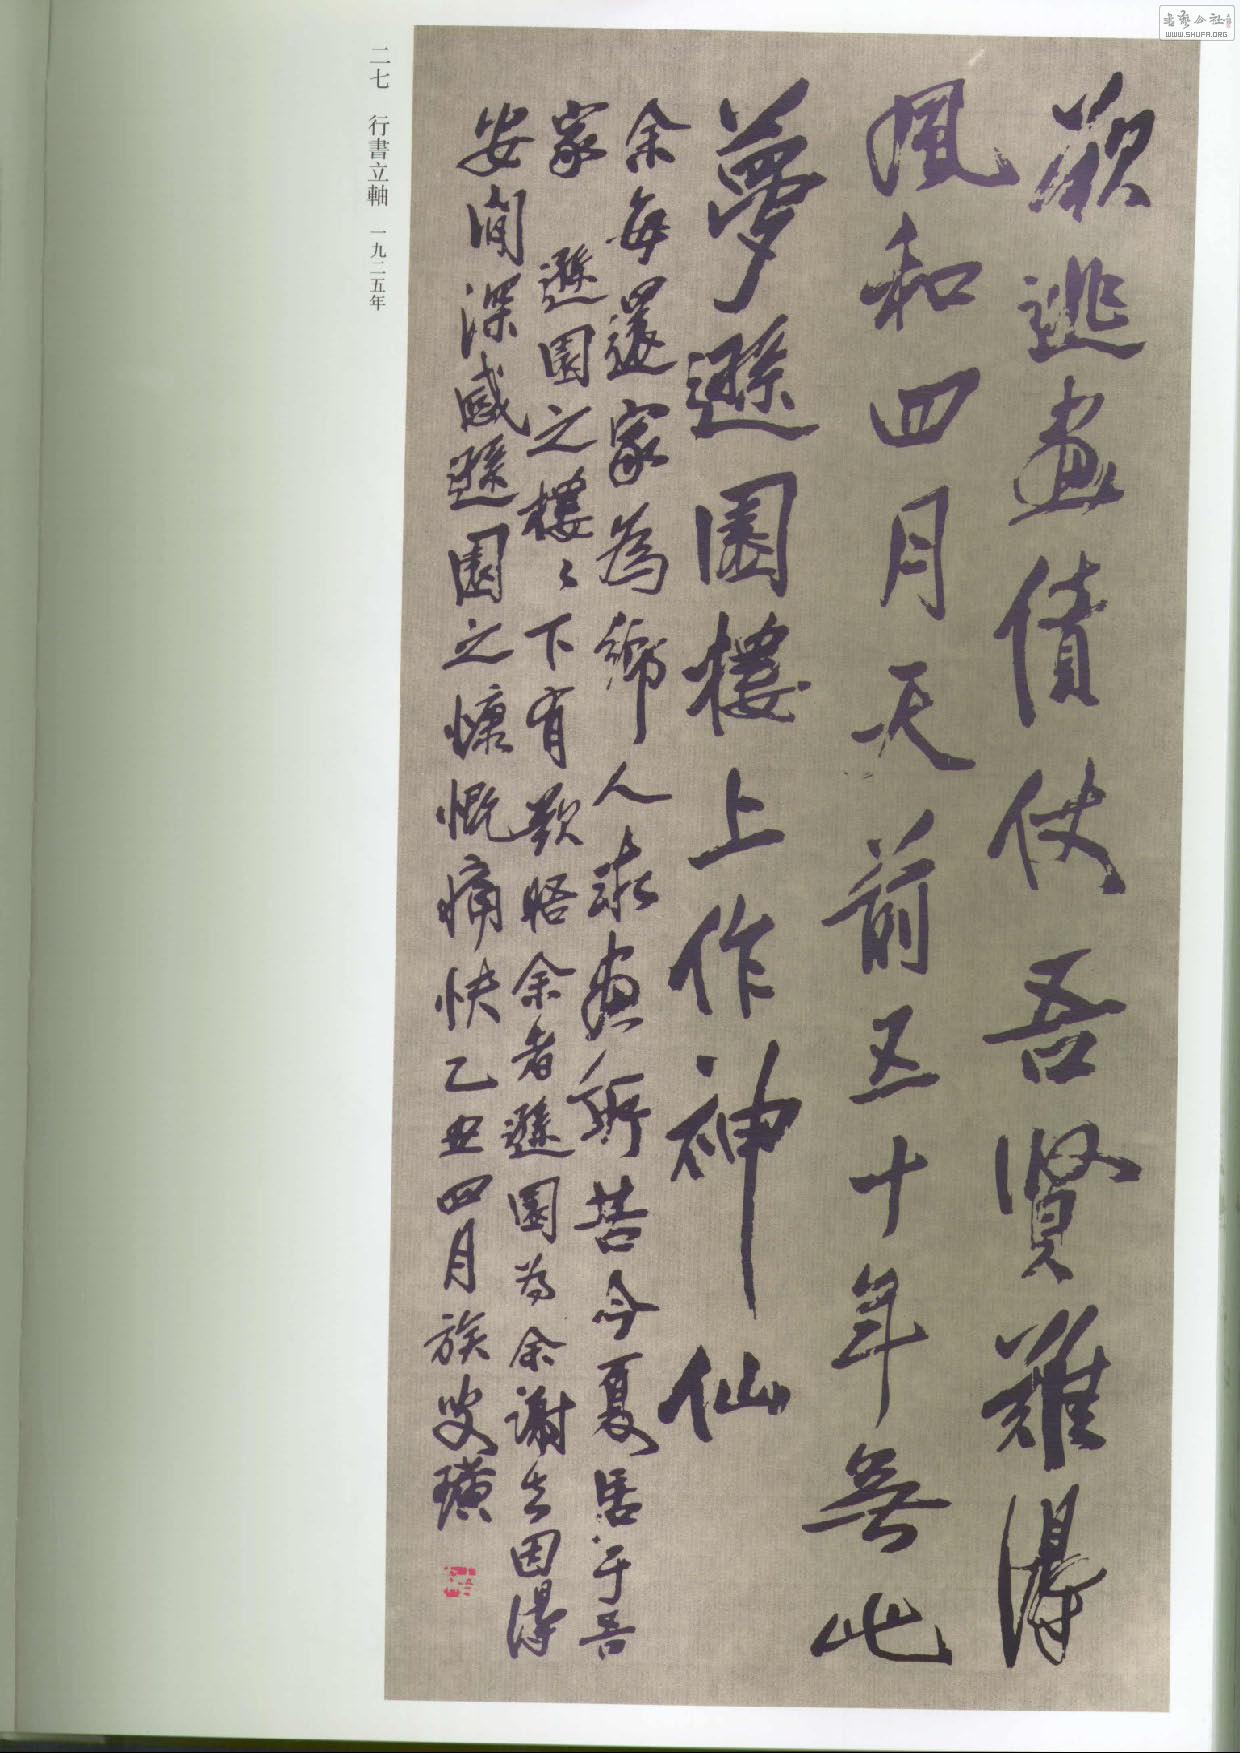 欲逃畫債仗吾賢難得
風和四月天前五十年無此
夢遯園樓上作神仙
余每還家為鄉人求畫所苦今夏居于吾
家遯園之樓々下有欲晤余者遯園為余謝去因得
安閒深感遯園之慷慨痛快乙丑四月族叟璜
二七 行書立軸 一九二五年
書藝公社
WWW.SHUFA.ORG